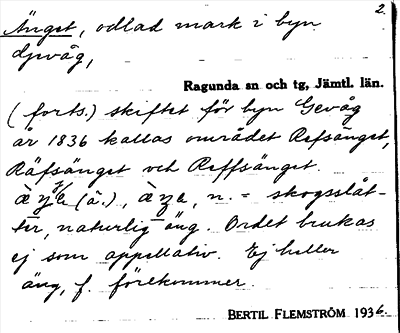 2.
Änget, odlad mark i byn
Djevåg,
Ragunda sn och tg, Jämtl. län.
(forts.) skiftet för byn Gevåg
år 1836 kallas området Refsänget,
Räfsänget och Reffsänget.
(å.), n. = skogsslåt-
ter, naturlig äng. Ordet brukas
ej som appellativ. Ej heller
äng, f. förekommer.
BERTIL FLEMSTRÖM 1936.